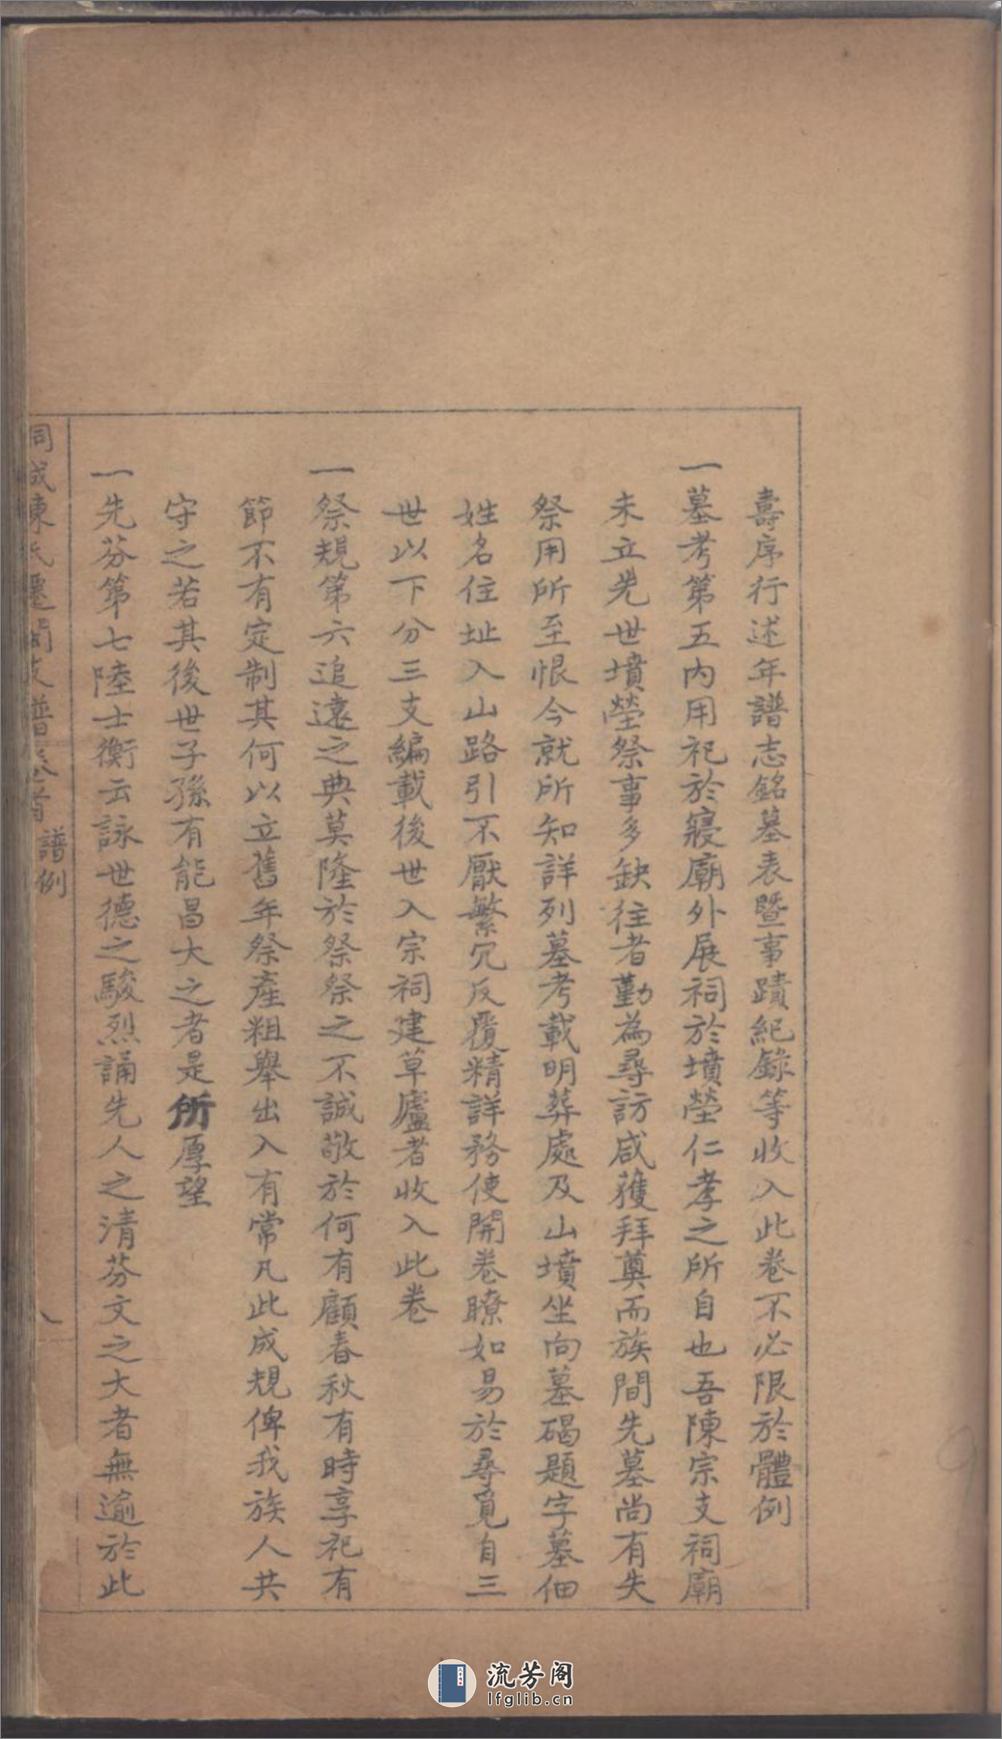 壽序行述年譜志銘墓表暨事蹟紀錄等收入此卷不必限於體例
一墓考第五內用祀於寢廟外展祠於墳塋仁孝之所自也吾陳宗支祠廟
未立先世墳塋祭事多缺往者勤為尋訪咸獲拜奠而族間先墓尚有失
祭用所至恨今就所知詳列墓考載明葬處及山墳坐向墓碣題字墓佃
姓名住址入山路引不厭繁冗反覆精詳務使開卷瞭如易於尋覓自三
世以下分三支編載後世入宗祠建草廬者收入此卷
一祭規第六追遠之典莫隆於祭祭之不誠敬於何有顧春秋有時享祀有
節不有定制其何以立舊年祭產粗舉出入有常凡此成規俾我族人共
守之若其後世子孫有能昌大之者是所厚望
一先芬第七陸士衡云詠世德之駿烈誦先人之清芬文之大者無逾於此
桐城陳氏遷閩支譜卷首 譜例 八
流芳阁
lfglib.cn